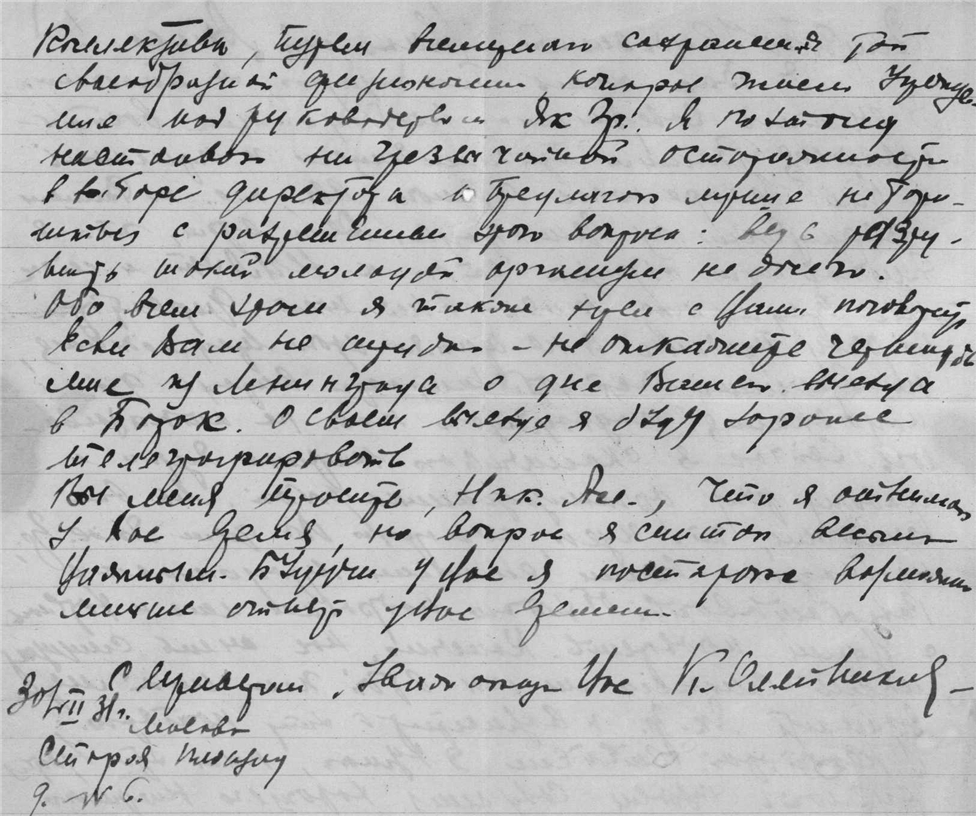 Коллектива, путем всемерного сохранения той
своеобразной физиономии, которое имело Учрежде
ние под руководством Як Гр. Я поэтому
настаиваю на чрезвычайной осторожности
в выборе директора и предлагаю лучше не торо-
питься с разрешением этого вопроса: ведь разру-
шить такой молодой организм не долго.
Обо всем этом я также хотел с Вами поговорить
Если Вам не трудно – не откажите черкнуть
мне из Ленинграда о дне Вашего выезда
в Борок. О своем выезде я буду
телеграфировать
Вы меня простите, Ник. Ал., что я отнимаю
у Вас время, но вопрос я считаю весьма
важным. Будучи у Вас я постараюсь возможно
меньше отнять у Вас времени.
С приветом, Ваш К. Олейников
30/VII 31 г.
Москва
Старая площадь
д. № 6.